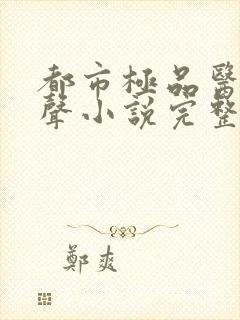 都市極品醫
聲小說完整
鄭爽